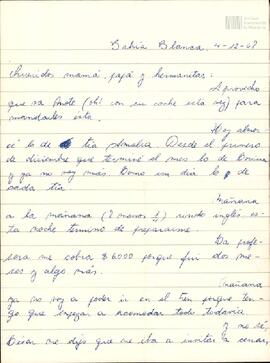 Bahía Blanca, 4-12-67
Queridos mamá, papá y hermanitas:
Aprovecho
que va (ahí con su coche esta vez) para
mandarles esta.
Hoy almor
cé lo de tía Amalia. Desde el primero
de diciembre que terminé el mes lo de
y ya no voy más. Como un día lo de
cada tía.
Mañana
a la mañana (8 menos 1/4) rindo inglés es-
ta noche termino de prepararme.
La profe-
sora me cobra $6000 porque fui dos me-
ses y algo más.
Mañana
ya no voy a poder ir en el tren porque ten-
go que empezar a acomodar todo todavía
y me
me dijo que me iba a invitar a cenar,